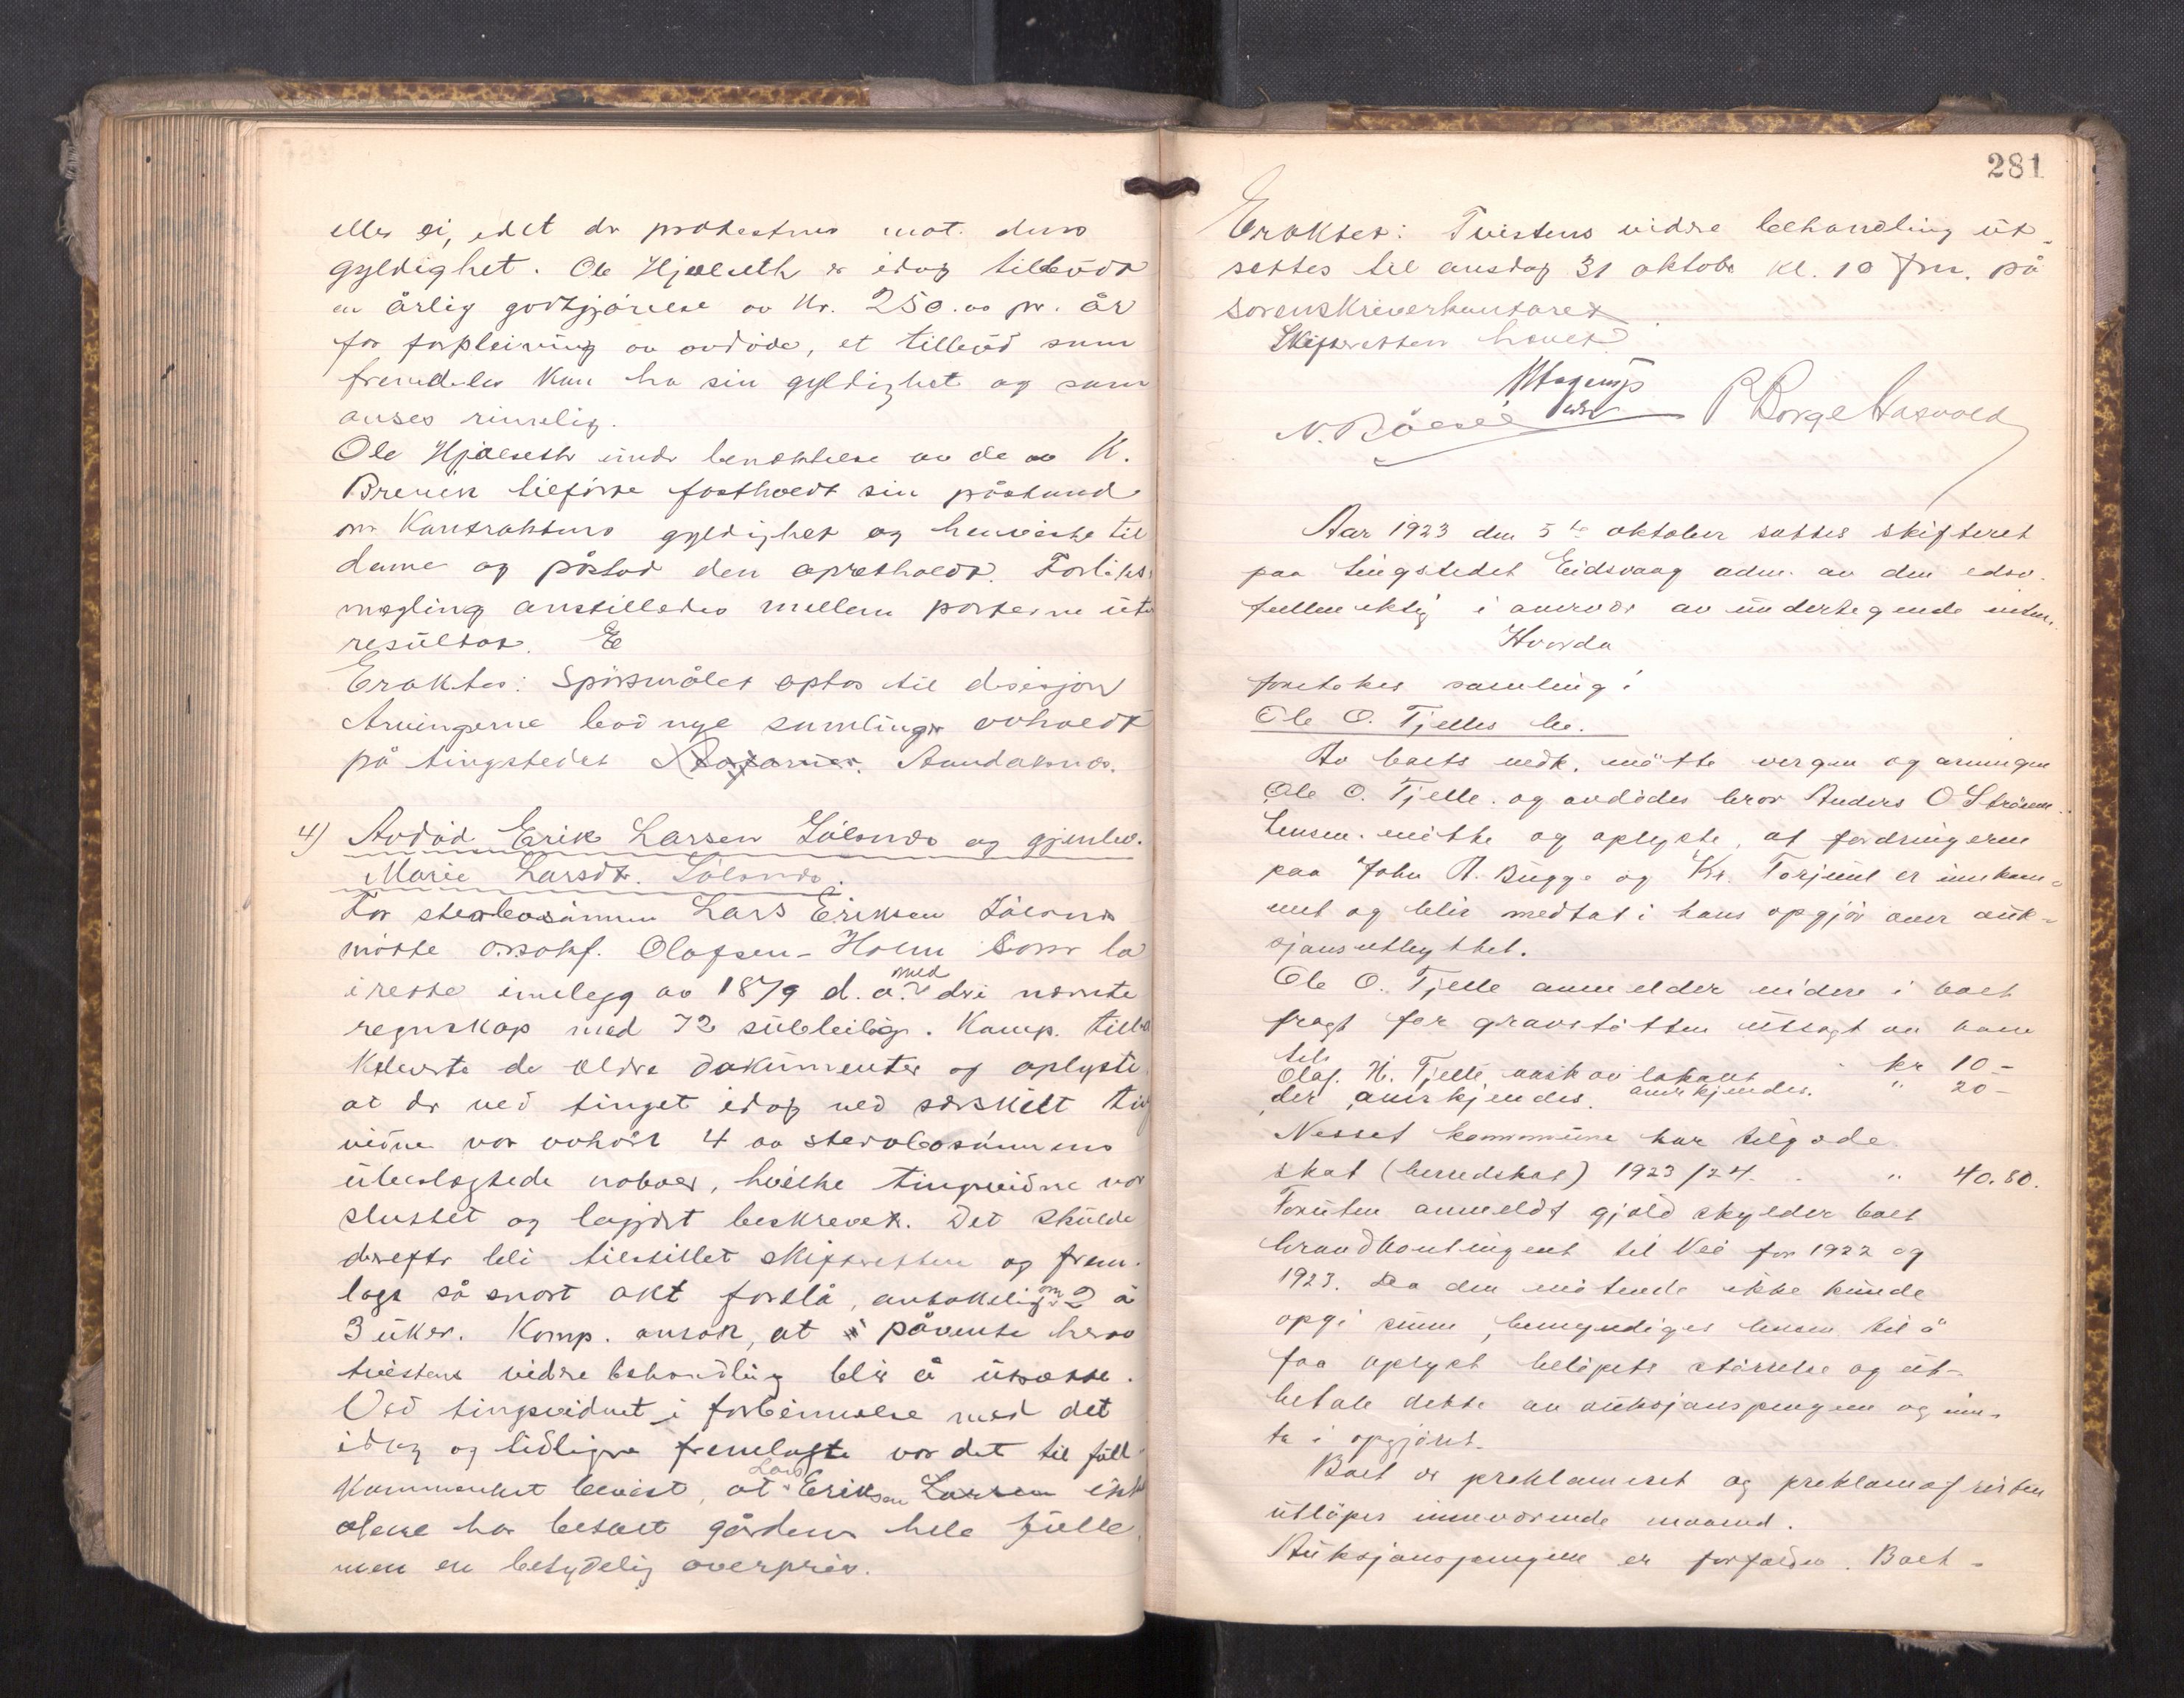 eller ei, idet der protesteres mot dens
gyldighet. Ole Hjelseth er idag tilbudt
en årlig godtgjörelse av Kr. 250.00 pr. år
for forpleining av avdöde, et tilbud som
fremdeles kan ha sin gyldighet og som
anses rimelig.
Ole Hjelseth under benektelse av de av K.
Brevik tilförte fastholdt sin påstand
om Kontraktens gyldighet og henviste til
denne og påstod den opretholdt. Forliks
megling anstilledes mellem parterne uten
resultat. E
Eraktes: Spörsmålet optas til desisjon
Arvingerne bad nye samlinger avholdt
på tingstedet Åndalsnes.
4) Avdöd Erik Larsen Sölsnes og gjenlev.
Marie Larsdtr. Sölsnes.
For stervbosönnen Lars Eriksen Sölsnes
mötte o.r.sakf. Olafsen-Holm som la
i rette innlegg av 18/9 d. a. med deri nevnte
regnskap med 72 subbilag. Komp. tilba
keleverte de eldre dokumenter og oplyste
at der ved tinget idag ved særskilt ting
vidne var avhört 4 av stervbosönnens
uberogtede naboer, hvilke tingsvidne var
sluttet og begjært beskrevet. Det skulde
derefter bli tilstillet skifteretten og frem-
lagt så snart akt forelå, antakelig om 2 à
3 uker. Komp. ansök, at i påvente herav
tvistens vidre behandling blir å utsette.
Ved tingsvidnet i forbindelse med det
idag og tidligere fremlagte var det til full
kommenhet bevist, at Lars Eriksen Larsen ikke
alene har betalt gårdens hele fulle,
men en betydelig overpris.
281
Eraktes: Tvistens vidre behandling ut-
settes til onsdag 31 oktober kl. 10 fm. på
sorenskriverkontoret
Skifteretten hevet.
N. Böe P. Borge Hasvold
Aar 1923 den 5te oktober sattes skifteret
paa tingstedet Eidsvaag adm. av den edsv.
fuldmektig i overvær av undertegnede vidner.
Hvorda
foretokes samling i
Ole O. Tjelles bo.
Av boets vedk. mötte vergen og arvingen
Ole O. Tjelle og avdödes bror Anders O Ström.
Lensm. mötte og oplyste, at fordringerne
paa John A. Bugge og Kr. Torjul er innkom-
met og blir medtat i hans opgjör over auk-
sjonsutbyttet.
Ole O. Tjelle anmelder vidre i boet
fragt for gravstötten utlagt av ham
kr 10 –
Olaf H. Tjelle vask av lokalet " 20 –
der anerkjendes. anerkjendes.
Nesset kommune har tilgode
skat (herredskat) 1923/24. " 40.80.
Foruten anmeldt gjæld skylder boet
brandkontingent til Veö for 1922 og
1923. Da den mötende ikke kunde
opgi sum, bemyndiges lensm. til å
faa oplyst belöpets störrelse og ut-
betale dette av auksjonspengene og inn-
ta i opgjöret.
Boet er proklameret og proklamafristen
utlöper inneværende maaned.
Auksjonspengene er forfaldne. Boet